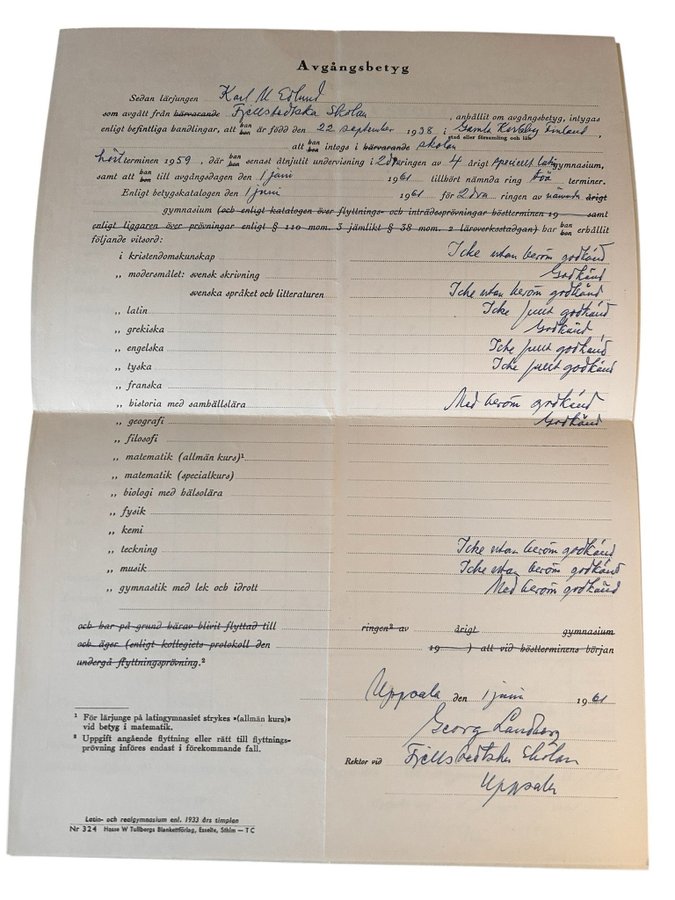 Avgångsbetyg
Sedan lärjungen Karl U Edlund
som avgått från härvarande Fjellstedtska Skolan, anhållit om avgångsbetyg, intygas
enligt befintliga handlingar, att han hon är född den 22 september 1938 i Gamla Karleby Finland,
stad eller församling och län
att han hon intogs i härvarande skolan
höstterminen 1959, där han hon senast åtnjutit undervisning i 2dra ringen av 4 årigt speciellt latingymnasium,
samt att han hon till avgångsdagen den 1 juni 1961 tillhört nämnda ring två terminer.
Enligt betygskatalogen den 1 juni 1961 för 2dra ringen av nämnda årigt
gymnasium (och enligt katalogen över flyttnings- och inträdesprövningar höstterminen 19 samt
enligt liggaren över prövningar enligt § 110 mom. 3 jämlikt § 38 mom. 2 läroverksstadgan) har han hon erhållit
följande vitsord:
i kristendomskunskap Icke utan beröm godkänd
„ modersmålet: svensk skrivning Godkänd
svenska språket och litteraturen Icke utan beröm godkänd
„ latin Icke fullt godkänd
„ grekiska Godkänd
„ engelska Icke fullt godkänd
„ tyska Icke fullt godkänd
„ franska
„ historia med samhällslära Med beröm godkänd
„ geografi Godkänd
„ filosofi
„ matematik (allmän kurs)¹
„ matematik (specialkurs)
„ biologi med hälsolära
„ fysik
„ kemi
„ teckning Icke utan beröm godkänd
„ musik Icke utan beröm godkänd
„ gymnastik med lek och idrott Med beröm godkänd
och har på grund härav blivit flyttad till ringen² av årigt gymnasium
och äger (enligt kollegiets protokoll den 19 ) att vid höstterminens början
undergå flyttningsprövning.²
Uppsala den 1 juni 1961
Georg Landberg
Rektor vid Fjellstedtska Skolan
Uppsala
¹ För lärjunge på latingymnasiet strykes »(allmän kurs)»
vid betyg i matematik.
² Uppgift angående flyttning eller rätt till flyttnings-
prövning införes endast i förekommande fall.
Latin- och realgymnasium enl. 1933 års timplan
Nr 324 Hasse W Tullbergs Blankettförlag, Esselte, Sthlm — TC